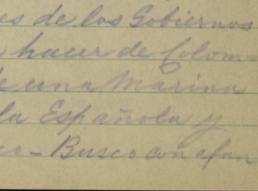 es de los Gobiernos
hacer de Colom-
de una Marina
la Española y
co - Busco con afan